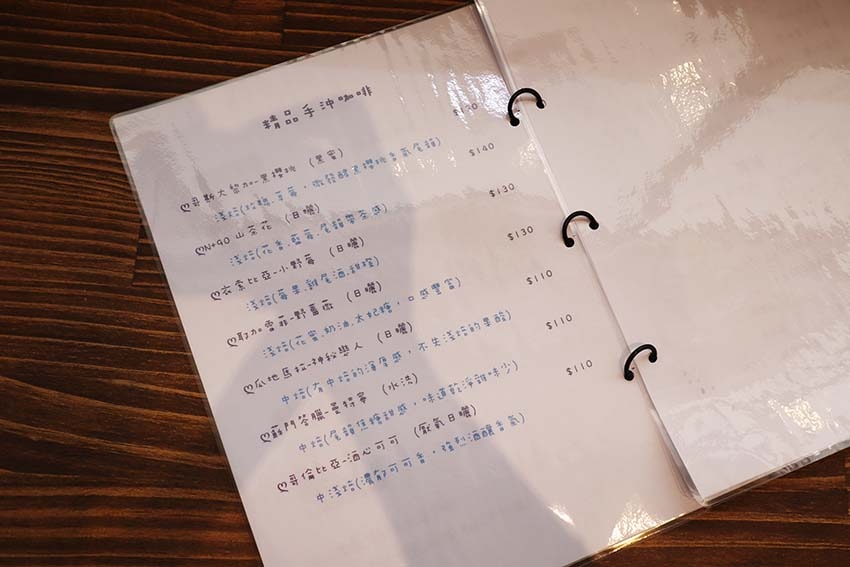 精品手沖咖啡
ღ哥斯大黎加-黑櫻桃 (黑蜜)
淺焙(柑橘.草莓，微發酵黑櫻桃香氣尾韻)
ღN+90 山茶花 (日曬) $140
淺焙(花香.藍莓.尾韻帶茶感)
ღ衣索比亞-小野莓 (日曬) $130
淺焙(莓果.雞尾酒.甜橙)
ღ耶加雪菲-野薔薇 (日曬) $130
淺焙(花蜜.奶油.太妃糖，口感豐富)
ღ瓜地馬拉-神秘戀人 (日曬) $110
中焙(有中焙的渾厚感，不失淺焙的果酸)
ღ蘇門答臘-曼特寧 (水洗) $110
中焙(尾韻焦糖甜感，味道乾淨雜味少)
ღ哥倫比亞-酒心可可 (厭氧日曬) $110
中淺焙(濃郁可可香，強烈酒釀香氣)